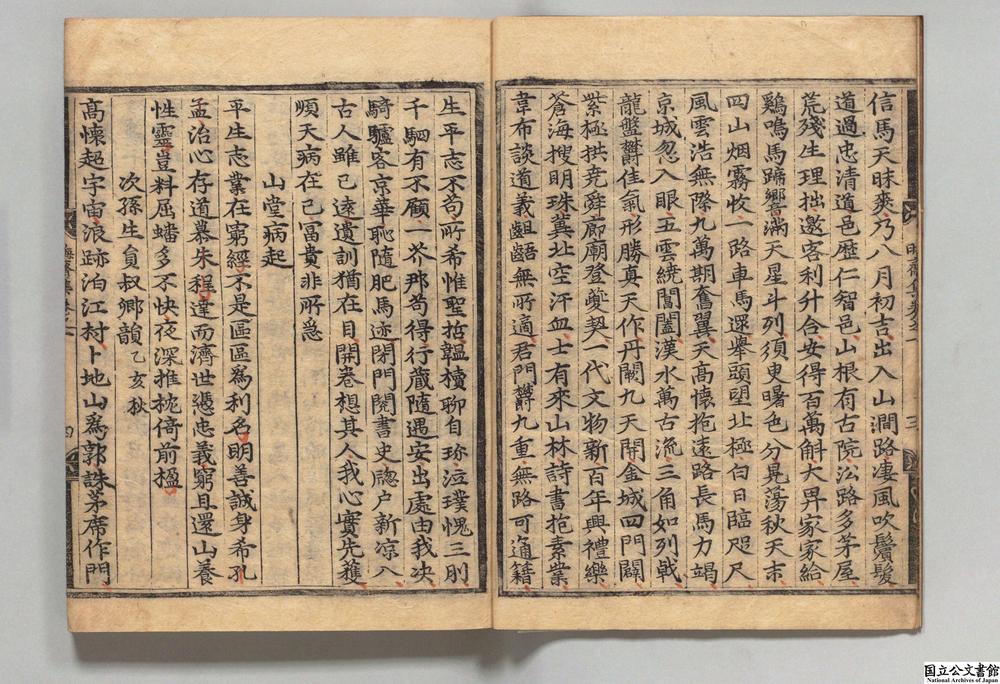 信馬天昧爽乃八月初吉出入山澗路凄風吹鬢髮
道過忠清道邑歷仁智邑山根有古院㳂路多茅屋
荒殘生理拙邀客利升合安得百萬斛大畀家家給
鷄鳴馬蹄響滿天星斗列須臾曙色分晃蕩秋天末
四山烟霧收一路車馬還舉頭望北極白日臨咫尺
風雲浩無際九萬期奮翼天高懷抱遠路長馬力竭
京城忽入眼五雲繞閶闔漢水萬古流三角如列戟
龍盤欝佳氣形勝真天作丹闕九天開金城四門闢
紫極拱堯舜廊廟登夔契一代文物新百年興禮樂
蒼海搜明珠冀北空汗血士有來山林詩書抱素業
韋布談道義齟齬無所適君門欝九重無路可通籍
晦齋集卷之一
三
生平志不苟所希惟聖哲韞櫝聊自珎泣璞愧三刖
千駟有不顧一芥那苟得行蔵隨遇安出處由我决
騎驢客京華恥隨肥馬迹閉門閱書史牕户新凉入
古人雖已遠遺訓猶在目開卷想其人我心實先獲
順天病在己富貴非所急
山堂病起
平生志業在窮經不是區區爲利名明善誠身希孔
孟治心存道慕朱程達而濟世憑忠義窮且還山養
性靈豈料屈蟠多不快夜深推枕倚前楹
次孫生員叔卿韻 乙亥秋
高懷超宇宙浪跡泊江村卜地山爲郭誅茅席作門
四
国立公文書館
National Archives of Japan